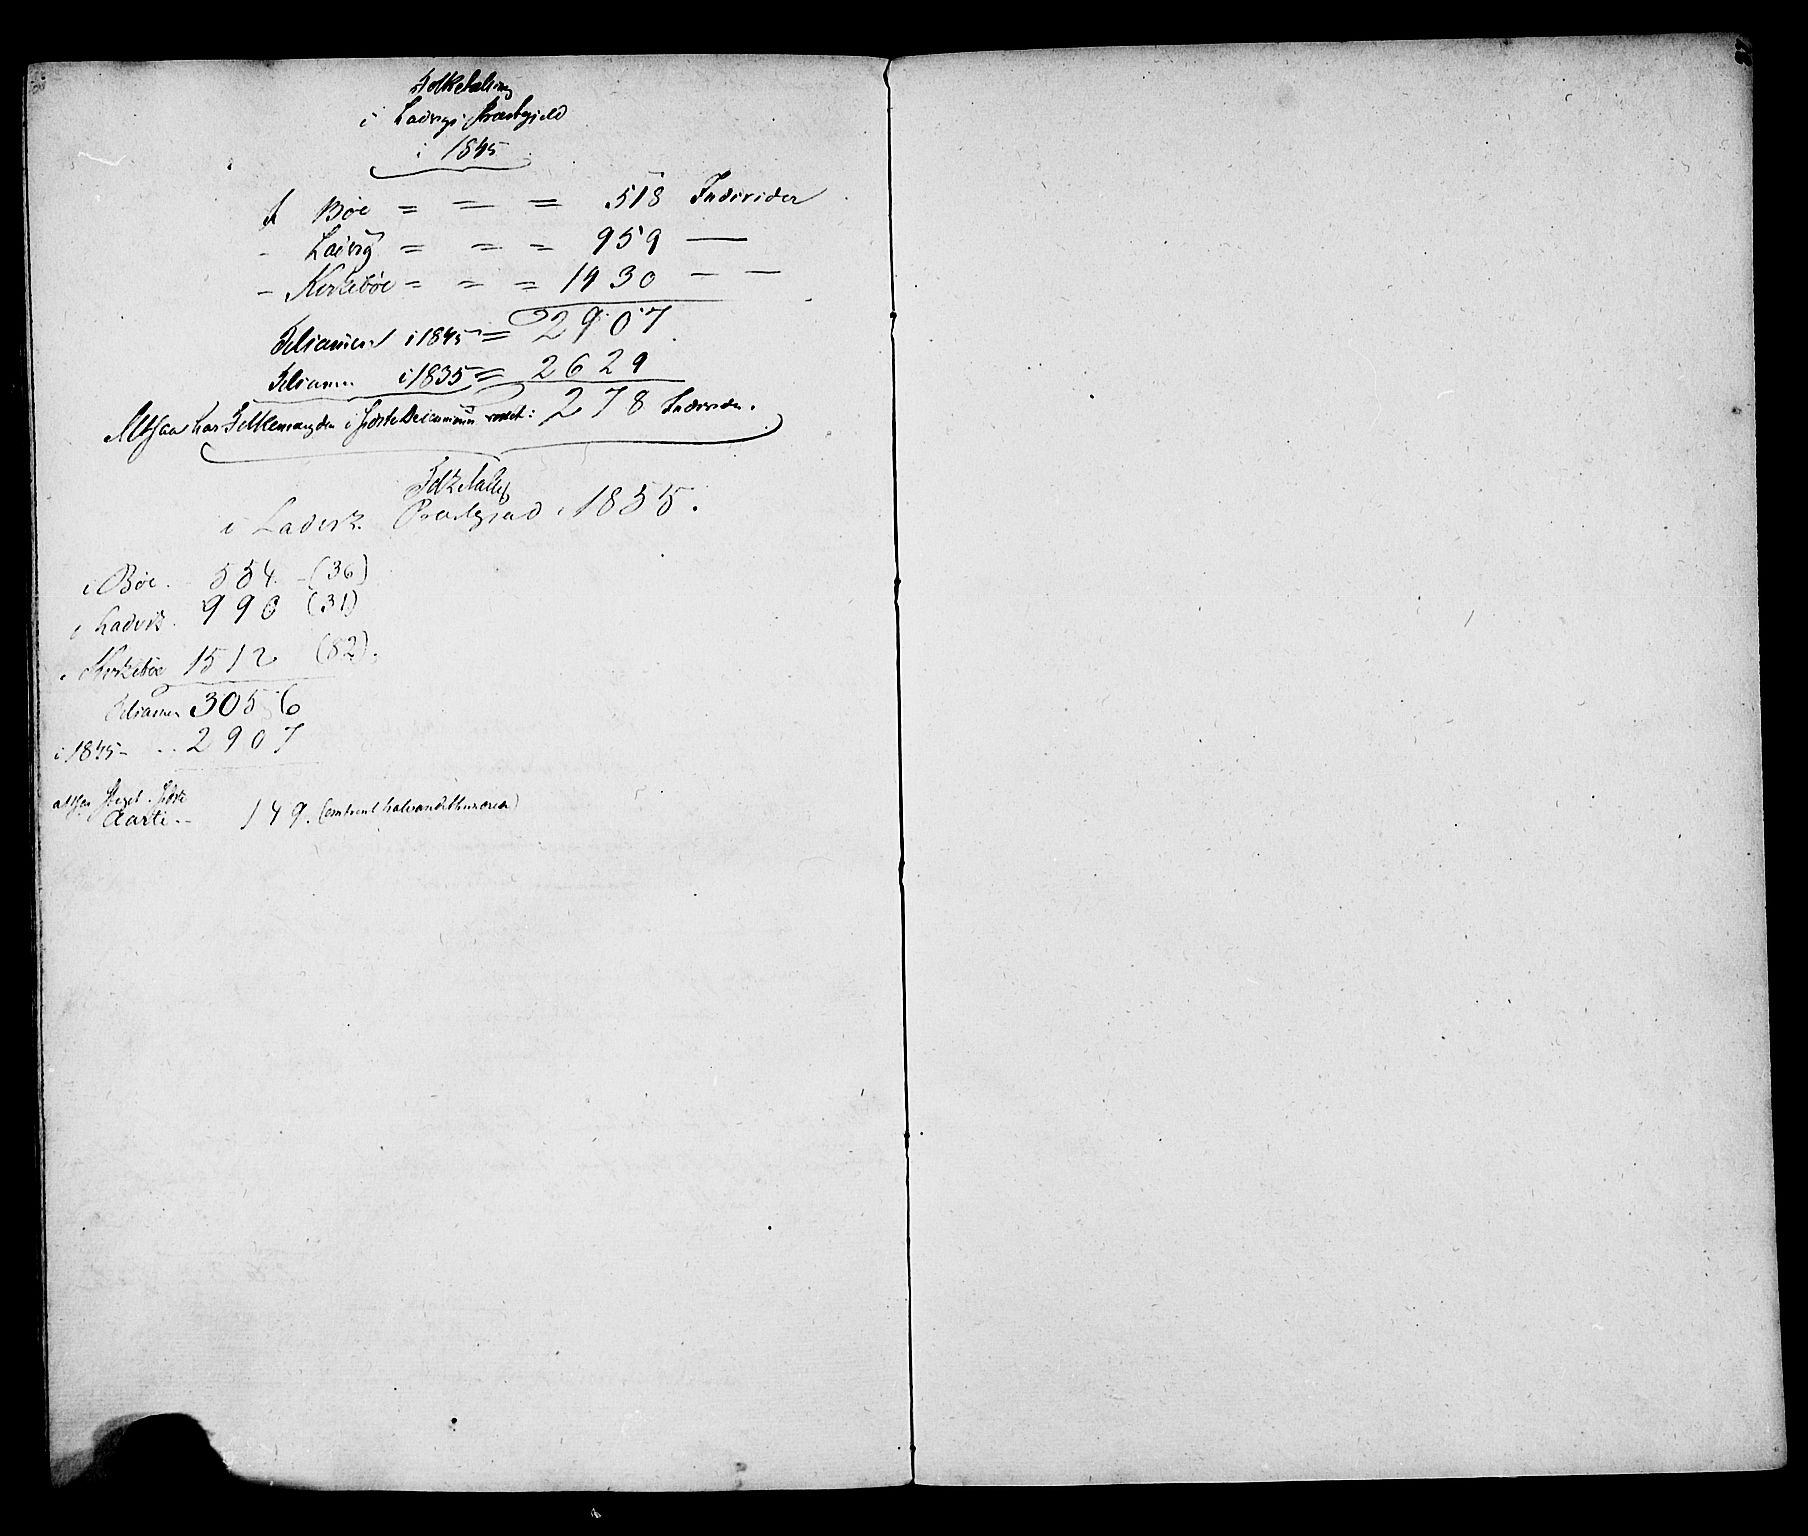 Folketælling
i Ladvigs Præstegjeld
i 1845
I Bøe = = = 518 Individer
- Ladvig = = = 959 —
- Kirkebøe = = = 1430 — —
Tilsammen i 1845 = 2907
Tilsammen i 1835 = 2629
Altsaa har Folkemængden i sidste Decennium voxet: 278 Individer.
Folketallet
i Ladvik Præstegjeld i 1855.
i Bøe. 554. - (36)
i Ladvik. 990 (31)
i Kirkebøe 1512 (82).
Tilsammen 3056
i 1845 - .. 2907
altsaa steget i sidste
Aarti.. 149. (omtrent halvandethundrede)